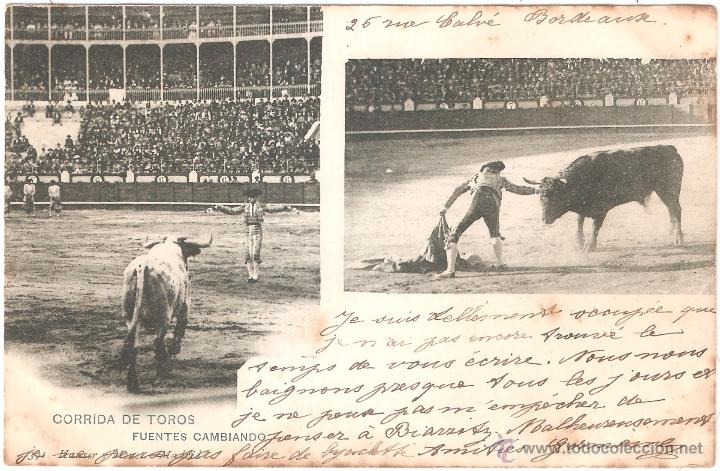 26 rue Calvé Bordeaux.
Je suis tellement occupée que
je n'ai pas encore trouvé le
temps de vous écrire. Nous nous
baignons presque tous les jours et
je ne peux pas m'empécher de
penser à Biarritz. Malheureusement
je pas faire de bicyclette Amitiés
CORRIDA DE TOROS
FUENTES CAMBIANDO
todocoleccion
www.todocoleccion.net